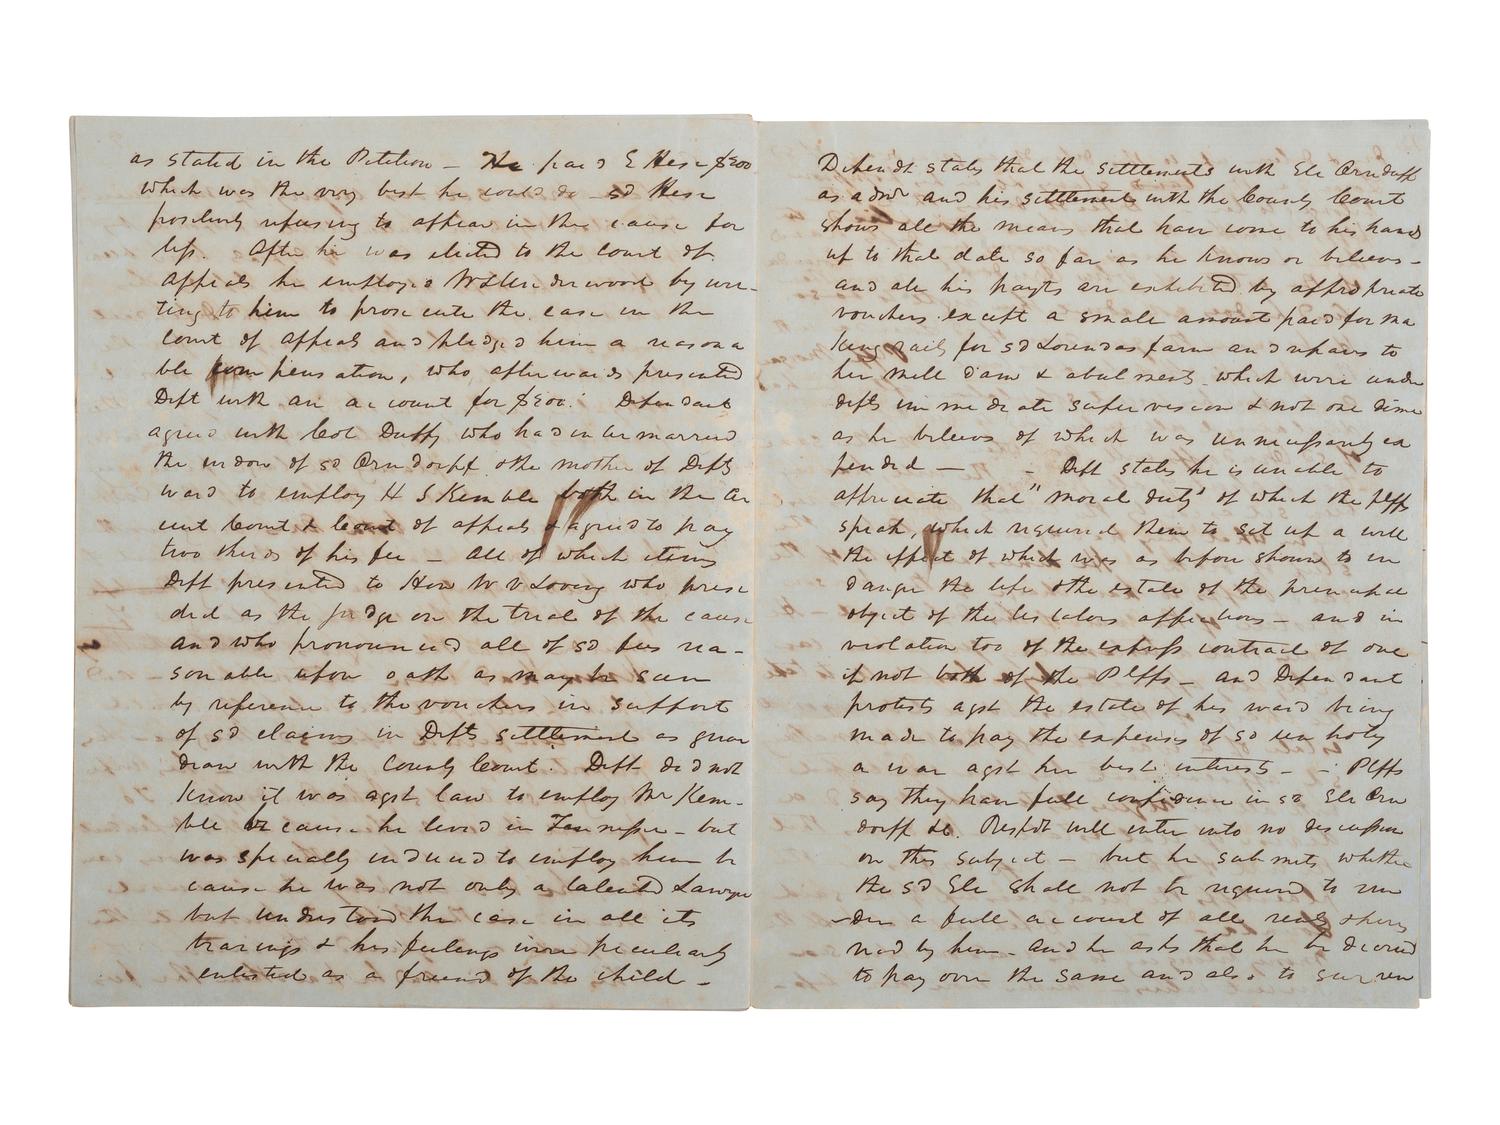 as stated in the Petition – He paid E Hise $200
which was the very best he could do sd Hise
positively refusing to appear in the cause for
less. After he was elected to the Court of
Appeals he employed W L Underwood by wri-
ting to him to prosecute the case in the
Court of Appeals and pledged him a reasona
ble compensation, who afterwards presented
Deft with an account for $200. Defendant
agreed with Col Duffy who had intermarried
the widow of sd Orndorff & the mother of Defts
ward to employ H S Kemble both in the Cir
cuit Court & Court of appeals & agreed to pay
two thirds of his fee – All of which items
Deft presented to Hon W V Loving who presi
ded as the Judge on the trial of the cause
and who pronounced all of sd fees rea-
sonable upon oath as may be seen
by reference to the vouchers in support
of sd claims in Defts settlement as guar
dian with the County Court. Deft did not
know it was agst law to employ Mr Kem-
ble because he lived in Tennessee – but
was specially induced to employ him be
cause he was not only a talented Lawyer
but understood the case in all its
bearings & his feelings were peculiarly
enlisted as a friend of the child –
Defendt states that the settlements with Eli Orndorff
as admr and his settlement with the County Court
shows all the means that have come to his hands
up to that date so far as he knows or believes –
and all his paymts are exhibited by appropriate
vouchers except a small amount paid for ma
king rails for sd Lorendas farm and repairs to
her mill dam & abutments which were under
defts immediate supervision & not one dime
as he believes of which was unnecessarily ex
pended – – Deft states he is unable to
appreciate that "moral duty" of which the plffs
speak, which required them to set up a will
the effect of which was as before shown to en
danger the life & the estate of the principal
object of the testators affections – and in
violation too of the express contract of one
if not both of the Plffs – and Defendant
protests agst the estate of his ward being
made to pay the expenses of so un holy
a war agst her best interests – – Plffs
say they have full confidence in sd Eli Orn
dorff &c. Respdt will enter into no discussion
on this subject – but he submits whether
the sd Eli shall not be required to ren
-der a full account of all rents & hires
recd by him – and he asks that he be decreed
to pay over the same and also to surren